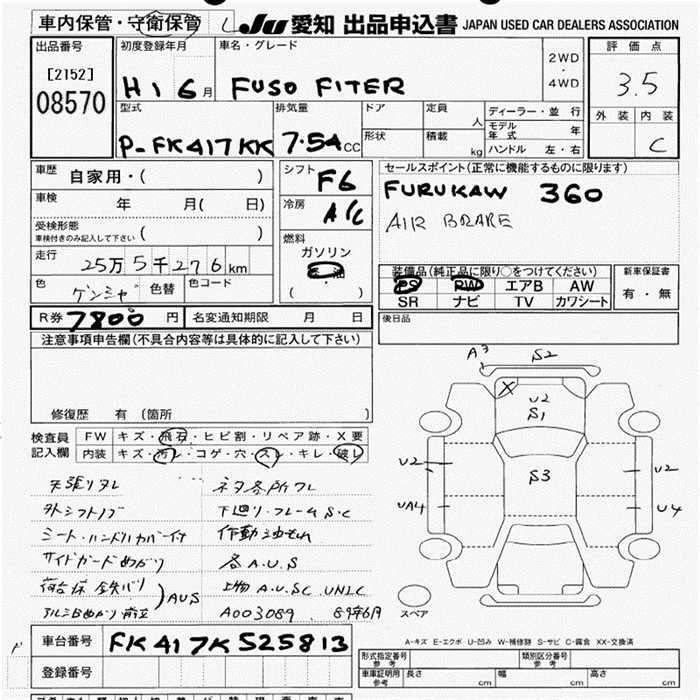 車内保管・守衛保管
JU 愛知 出品申込書 JAPAN USED CAR DEALERS ASSOCIATION
出品番号
[2152]
08570
初度登録年月
H16月
車名・グレード
FUSO FITER
2WD
・
4WD
評価点
3.5
外装 内装
C
型式
P-FK417KK
排気量
7.54CC
ドア
形状
定員 人
積載 kg
ディーラー・並行
モデル年式 年
ハンドル 左・右
車歴 自家用・( )
車検 年 月( 日)
受検形態
車検付きのみ記入して下さい ( )
走行
25万5千276km
色 色替 色コード
シフト F6
冷房 A/C
燃料
ガソリン
軽油
・
( )
セールスポイント(正常に機能するものに限ります)
FURUKAW 360
AIR BRAKE
装備品(純正品に限り○をつけてください)
PS PW エアB AW
SR ナビ TV カワシート
新車保証書
有・無
後日品
R券 7800 円 名変通知期限 月 日
注意事項申告欄(不具合内容等は具体的に記入して下さい)
修復歴 有 (箇所 )
検査員記入欄
FW キズ・飛石・ヒビ割・リペア跡・X要
内装 キズ・汚レ・コゲ・穴・スレ・キレ・破レ
天張りタレ
外シフトノブ 下廻り・フレームS・C
シート・ハンドルカバー付
サイドガードめがり 各A.U.S
AUS 上物A.U.SC UNIC
A003089 89年6月
A3 S2
U2
S1
S3
U2 U2
UA4 U4
スペア
A-キズ E-エクボ U-凹み W-補修跡 S-サビ C-腐食 XX-交換済
車台番号 FK417K525813
登録番号
形式指定番号 参考
類別区分番号 参考
車庫証明用 参考 長さ cm 幅 cm 高さ cm